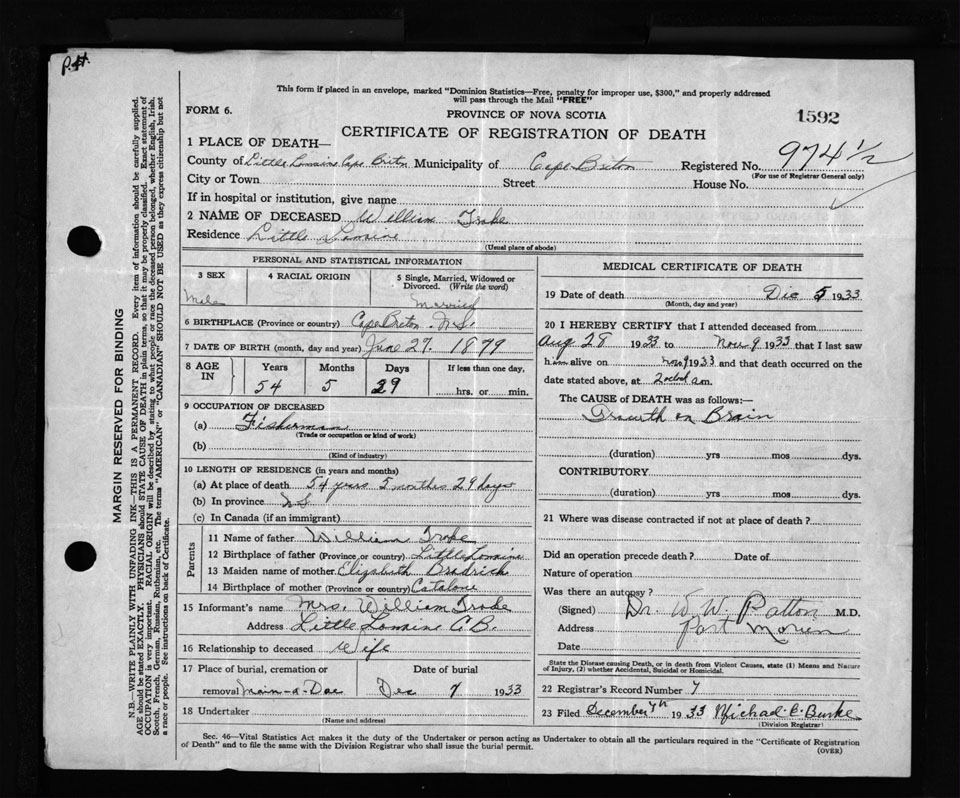 P.H.
This form if placed in an envelope, marked "Dominion Statistics—Free, penalty for improper use, $300," and properly addressed
will pass through the Mail "FREE"
FORM 6.
PROVINCE OF NOVA SCOTIA
1592
CERTIFICATE OF REGISTRATION OF DEATH
1 PLACE OF DEATH—
974½
County of Little Lorraine Cape Breton Municipality of Cape Breton Registered No.
(For use of Registrar General only)
City or Town Street House No.
If in hospital or institution, give name
2 NAME OF DECEASED William Troke
Residence Little Lorraine
(Usual place of abode)
PERSONAL AND STATISTICAL INFORMATION
3 SEX
Male
4 RACIAL ORIGIN
5 Single, Married, Widowed or
Divorced. (Write the word)
Married
6 BIRTHPLACE (Province or country) Cape Breton N.S.
7 DATE OF BIRTH (month, day and year) June 27. 1879
8 AGE IN
Years Months Days If less than one day,
54 5 29 hrs. or min.
9 OCCUPATION OF DECEASED
(a) Fisherman
(Trade or occupation or kind of work)
(b)
(Kind of industry)
10 LENGTH OF RESIDENCE (in years and months)
(a) At place of death 54 years 5 months 29 days
(b) In province N.S
(c) In Canada (if an immigrant)
Parents
11 Name of father William Troke
12 Birthplace of father (Province or country) Little Lorraine
13 Maiden name of mother Elizabeth Brodrick
14 Birthplace of mother (Province or country) Catalone
15 Informant's name Mrs. William Troke
Address Little Lorraine C.B.
16 Relationship to deceased Wife
17 Place of burial, cremation or
removal Main-a-Dae
Date of burial
Dec 7 1933
18 Undertaker
(Name and address)
MEDICAL CERTIFICATE OF DEATH
19 Date of death Dec 5 1933
(Month, day and year)
20 I HEREBY CERTIFY that I attended deceased from
Aug 28 1933 to Nov 9 1933 that I last saw
him alive on Nov 9 1933 and that death occurred on the
date stated above, at 2 oclock a.m.
The CAUSE of DEATH was as follows:—
Growth on Brain
(duration) yrs mos dys.
CONTRIBUTORY
(duration) yrs. mos. dys.
21 Where was disease contracted if not at place of death?
Did an operation precede death? Date of
Nature of operation
Was there an autopsy?
(Signed) Dr. W W Patton M.D.
Address Port Morien
Date
State the Disease causing Death, or in death from Violent Causes, state (1) Means and Nature
of Injury, (2) whether Accidental, Suicidal or Homicidal.
22 Registrar's Record Number 7
23 Filed December 7th 1933 Michael C. Burke
(Division Registrar)
Sec. 46—Vital Statistics Act makes it the duty of the Undertaker or person acting as Undertaker to obtain all the particulars required in the "Certificate of Registration
of Death" and to file the same with the Division Registrar who shall issue the burial permit.
(OVER)
MARGIN RESERVED FOR BINDING
N.B.—WRITE PLAINLY WITH UNFADING INK—THIS IS A PERMANENT RECORD. Every item of information should be carefully supplied.
AGE should be stated EXACTLY. PHYSICIANS should STATE CAUSE OF DEATH in plain terms, so that it may be properly classified. Exact statement of
OCCUPATION is very important. RACIAL ORIGIN will be described by stating to what people or race the deceased person belonged, whether English, Irish,
Scotch, French, German, Russian, Ruthenian, etc. The terms "AMERICAN" or "CANADIAN" SHOULD NOT BE USED as they express citizenship but not
a race or people. See instructions on back of Certificate.